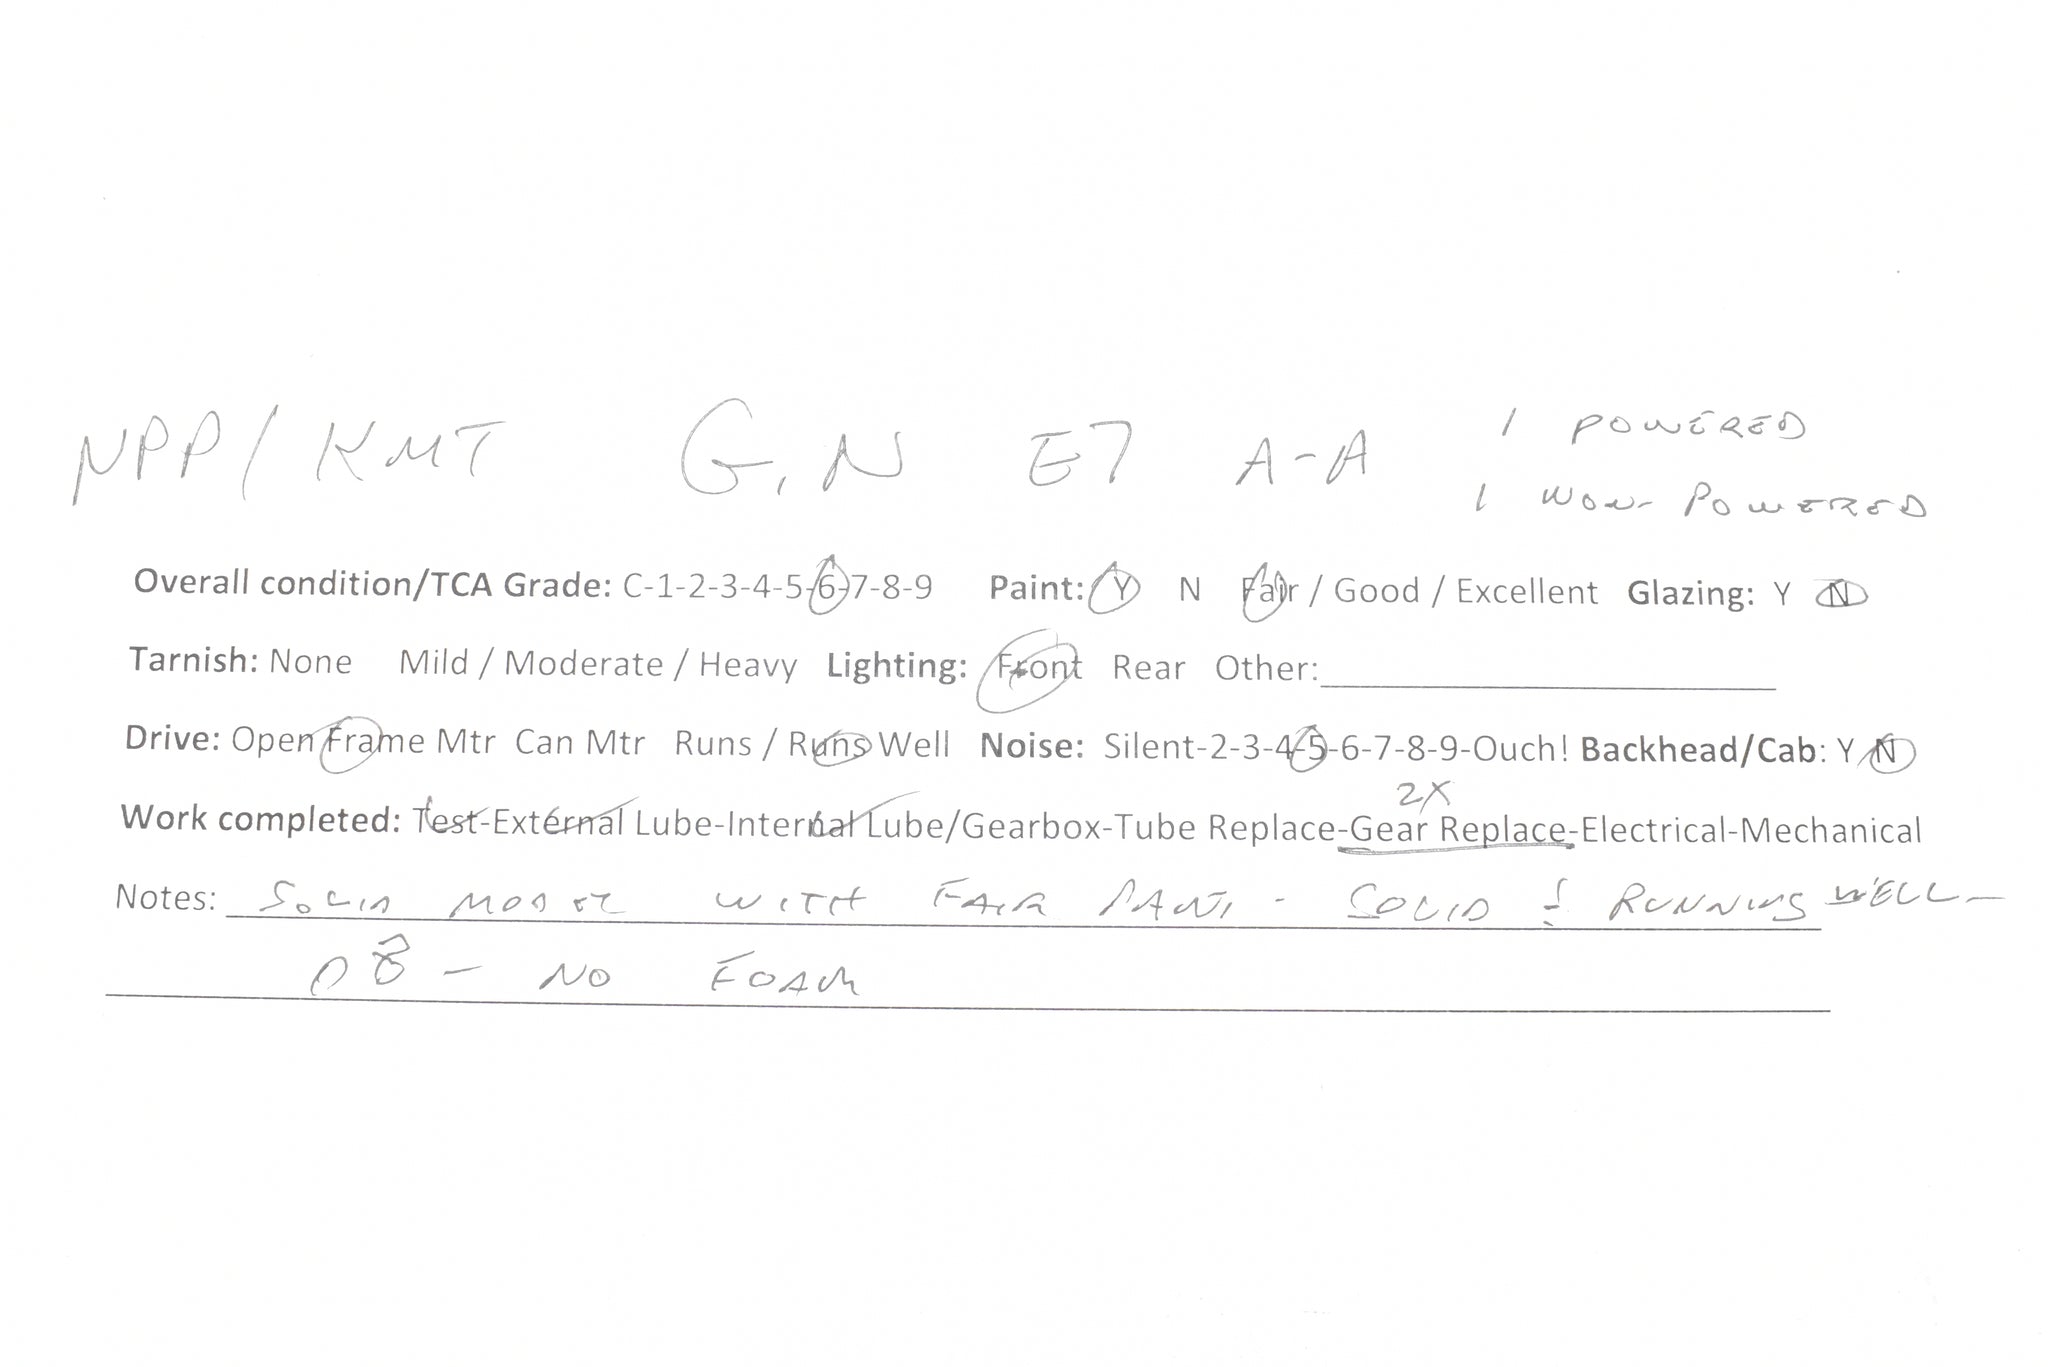 NPP/KMT G.N E7 A-A 1 POWERED
1 NON-POWERED
Overall condition/TCA Grade: C-1-2-3-4-5-6-7-8-9 Paint: Y N Fair / Good / Excellent Glazing: Y N
Tarnish: None Mild / Moderate / Heavy Lighting: Front Rear Other:
Drive: Open Frame Mtr Can Mtr Runs / Runs Well Noise: Silent-2-3-4-5-6-7-8-9-Ouch! Backhead/Cab: Y N
2X
Work completed: Test-External Lube-Internal Lube/Gearbox-Tube Replace-Gear Replace-Electrical-Mechanical
Notes: SOLID MODEL WITH FAIR PAINT - SOLID & RUNNING WELL -
OB - NO FOAM